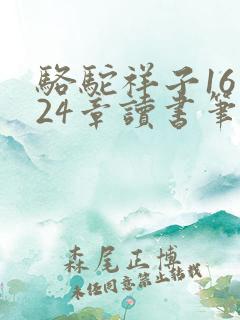 駱駝祥子16
24章讀書筆
森尾正博
未經同意禁止轉載